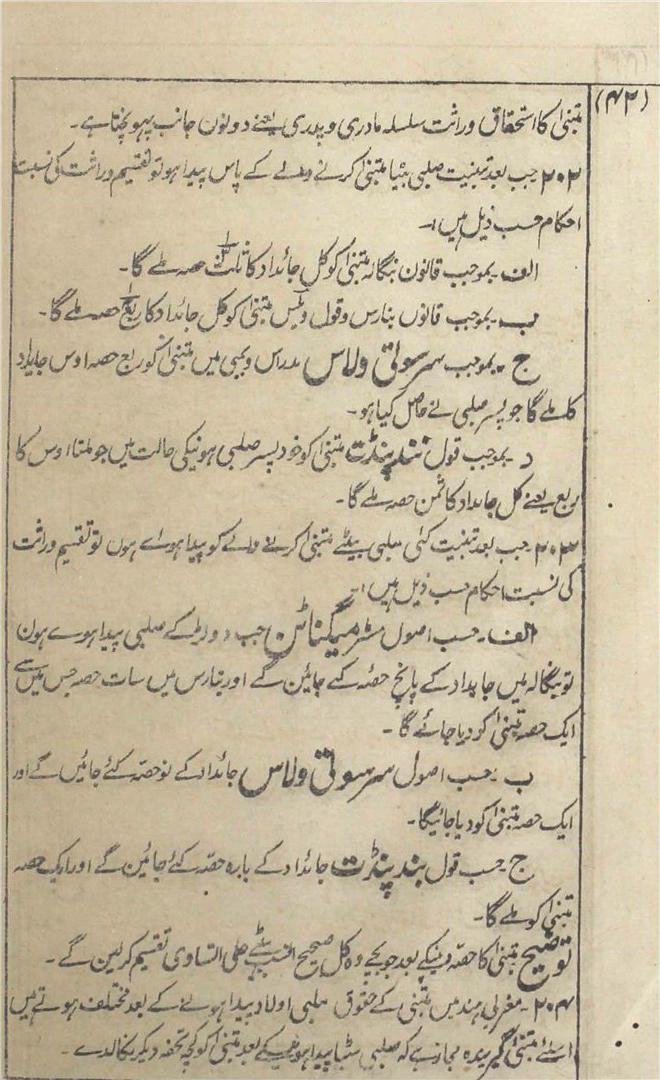 (۴۲)
متبنیٰ کا استحقاق وراثت سلسلہ مادری و پدری یعنے دونون جانب پہونچتا ہے۔
۲۰۲ جب بعد تبنیت صلبی بیٹا متبنیٰ کرنے والے کے پاس پیدا ہو تو تقسیم وراثت کی نسبت
احکام حسب ذیل ہیں:۔
الف۔ بموجب قانون بنگالہ متبنیٰ کو کل جائداد کا ثلث حصہ ملے گا۔
ب۔ بموجب قانون بنارس و قول متبنیٰ کو کل جائداد کا ربع حصہ ملے گا۔
ج۔ بموجب سرسوتی ولاس مدراس و بمبی میں متبنیٰ کو ربع حصہ اوس جایداد
کا ملے گا جو پسر صلبی نے حاصل کیا ہو۔
د۔ بموجب قول نند پنڈت متبنیٰ کو خود پسر صلبی ہونیکی حالت میں جو ملتا اوس کا
ربع یعنے کل جائداد کا ثمن حصہ ملے گا۔
۲۰۳۔ جب بعد تبنیت کئی صلبی بیٹے متبنیٰ کرنے والے کو پیدا ہوے ہوں تو تقسیم وراثت
کی نسبت احکام حسب ذیل ہیں:۔
الف۔ حسب اصول مسٹر میگناٹن جب دو لڑکے صلبی پیدا ہوے ہون
تو بنگالہ میں جایداد کے پانچ حصہ کئے جائین گے اور بنارس میں سات حصہ جس میں سے
ایک حصہ متبنیٰ کو دیا جائے گا۔
ب۔ حسب اصول سرسوتی ولاس جائداد کے نو حصہ کئے جائیں گے اور
ایک حصہ متبنیٰ کو دیا جائیگا۔
ج۔ حسب قول نند پنڈت جائداد کے بارہ حصہ کئے جائین گے اور ایک حصہ
متبنیٰ کو ملے گا۔
توضیح متبنیٰ کا حصہ دینیکے بعد جو بچے وہ کل صحیح النسب بیٹے علی التساوی تقسیم کر لین گے۔
۲۰۴۔ مغربی ہند میں متبنیٰ کے حقوق صلبی اولاد پیدا ہونے کے بعد مختلف ہوتے ہیں
اسلئے متبنیٰ گیرندہ مجاز ہے کہ صلبی بیٹا پیدا ہونیکے بعد متبنیٰ کو کچہ تحفہ دیکر نکالدے۔